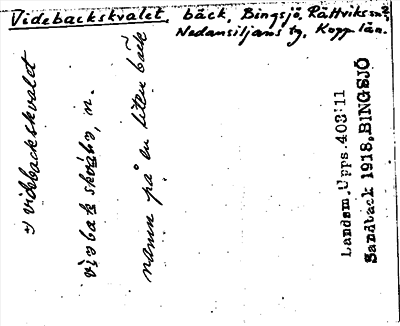 Videbackskvalet, bäck, Bingsjö, Rättviks sn.
Nedansiljans tg, Kopp. län.
videbackskvalet
n.
namn på en liten bäck
Landsm. Upps. 403:11
Sandback 1918, BINGSJÖ